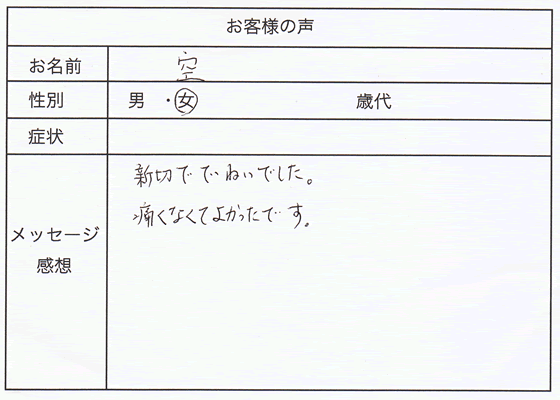 お客様の声
お名前 空
性別 男 ・ 女 歳代
症状
メッセージ
感想
新切ででいねいでした。
痛くなくてよかったです。